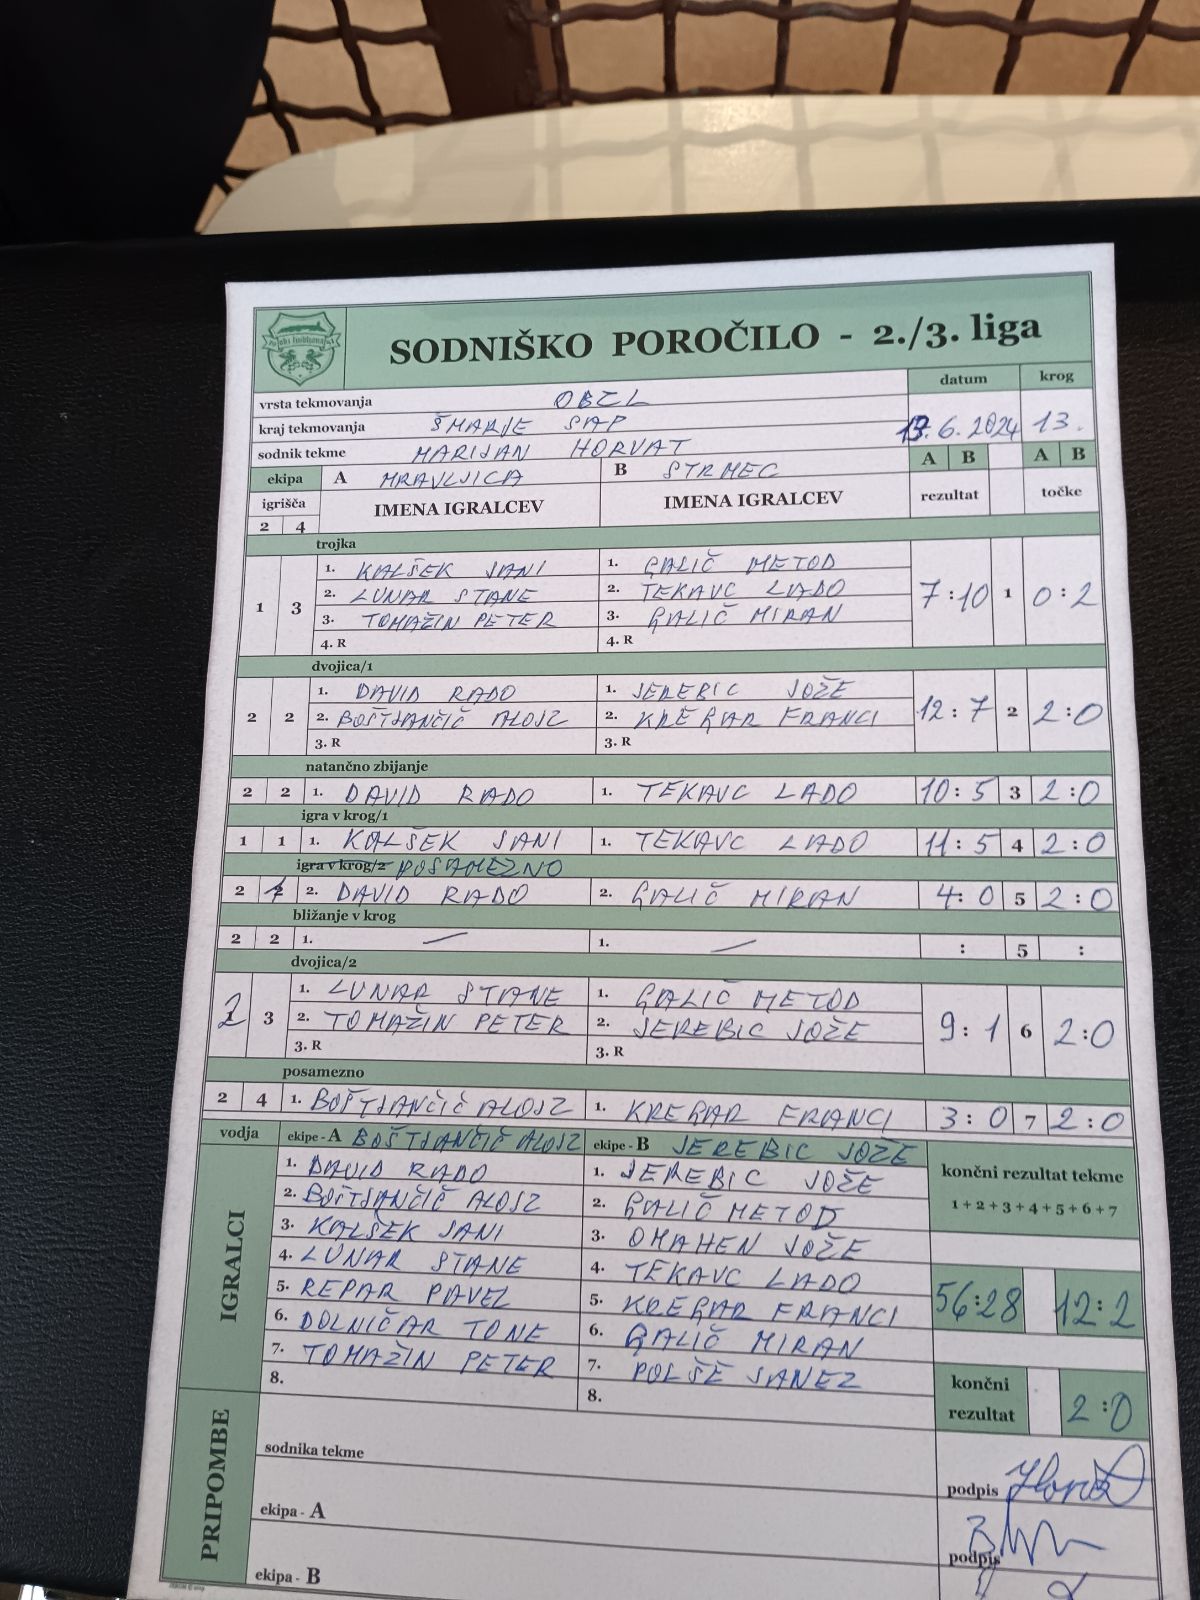 SODNIŠKO POROČILO - 2./3. liga
vrsta tekmovanja OBZL datum krog
kraj tekmovanja ŠMARJE SAP 13.6.2024 13.
sodnik tekme MARIJAN HORVAT
ekipa A MRAVLJICA B STRMEC A B A B
igrišča IMENA IGRALCEV IMENA IGRALCEV rezultat točke
2 4
trojka
1 3 1. KALŠEK JANI 1. GALIČ METOD 7:10 1 0:2
2. LUNAR STANE 2. TEKAVC LADO
3. TOMAŽIN PETER 3. GALIČ MIRAN
4. R 4. R
dvojica/1
2 2 1. DAVID RADO 1. JEREBIC JOŽE 12:7 2 2:0
2. BOŠTJANČIČ ALOJZ 2. KREGAR FRANCI
3. R 3. R
natančno zbijanje
2 2 1. DAVID RADO 1. TEKAVC LADO 10:5 3 2:0
igra v krog/1
1 1 1. KALŠEK JANI 1. TEKAVC LADO 11:5 4 2:0
igra v krog/2 POSAMEZNO
2 2. DAVID RADO 2. GALIČ MIRAN 4:0 5 2:0
bližanje v krog
2 2 1. — 1. — : 5 :
dvojica/2
2 3 1. LUNAR STANE 1. GALIČ METOD 9:1 6 2:0
2. TOMAŽIN PETER 2. JEREBIC JOŽE
3. R 3. R
posamezno
2 4 1. BOŠTJANČIČ ALOJZ 1. KREGAR FRANCI 3:0 7 2:0
vodja ekipe - A BOŠTJANČIČ ALOJZ ekipe - B JEREBIC JOŽE
IGRALCI
1. DAVID RADO 1. JEREBIC JOŽE končni rezultat tekme
2. BOŠTJANČIČ ALOJZ 2. GALIČ METOD 1+2+3+4+5+6+7
3. KALŠEK JANI 3. OMAHEN JOŽE
4. LUNAR STANE 4. TEKAVC LADO
5. REPAR PAVEL 5. KREGAR FRANCI 56:28 12:2
6. DOLNIČAR TONE 6. GALIČ MIRAN
7. TOMAŽIN PETER 7. POLŠE JANEZ
8. 8. končni rezultat 2:0
PRIPOMBE
sodnika tekme
podpis
ekipa - A
podpis
ekipa - B